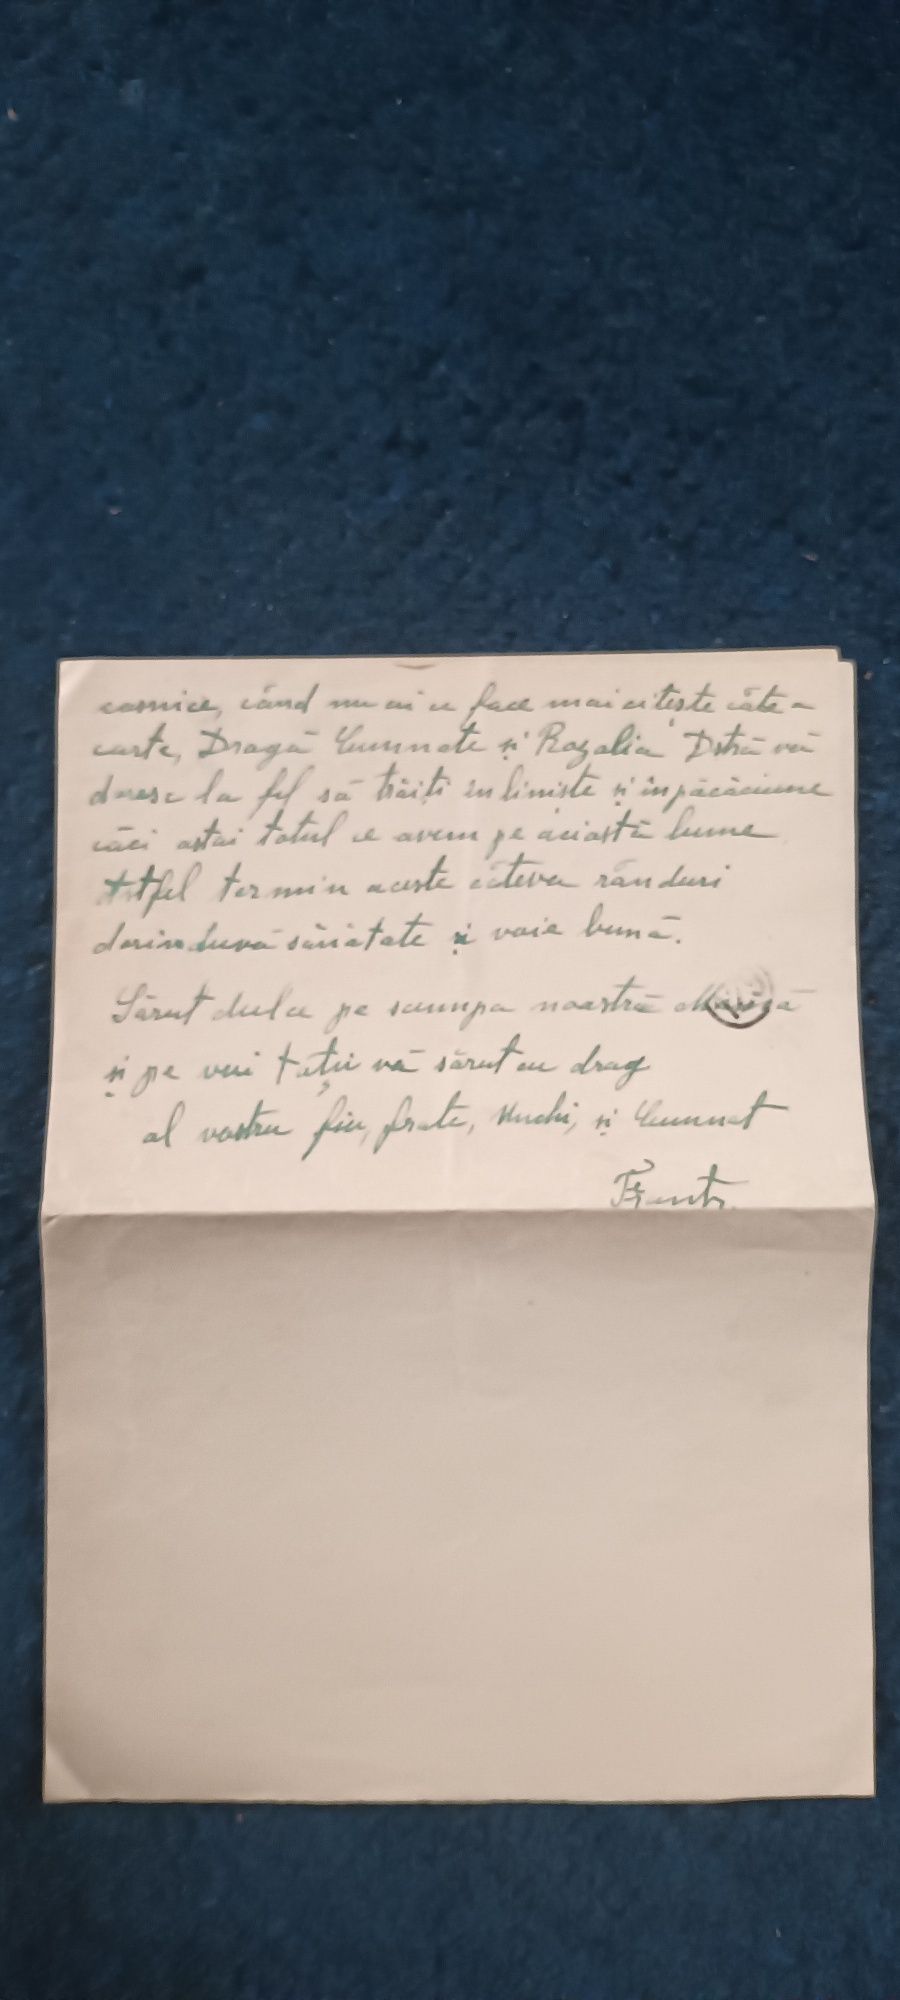 casnice, când nu ai ce face mai citește câte o
carte, Dragă Cumnate și Rozalia Dstră vă
doresc la fel să trăiți în liniște și înpăcăciune
căci astai totul ce avem pe aciastă lume
Astfel termin aceste câteva rânduri
dorinduvă sănătate și voie bună.
Sărut dulce pe scumpa noastră
și pe voi toții vă sărut cu drag
al vostru fiu, frate, Unchi, și Cumnat
Frantz.